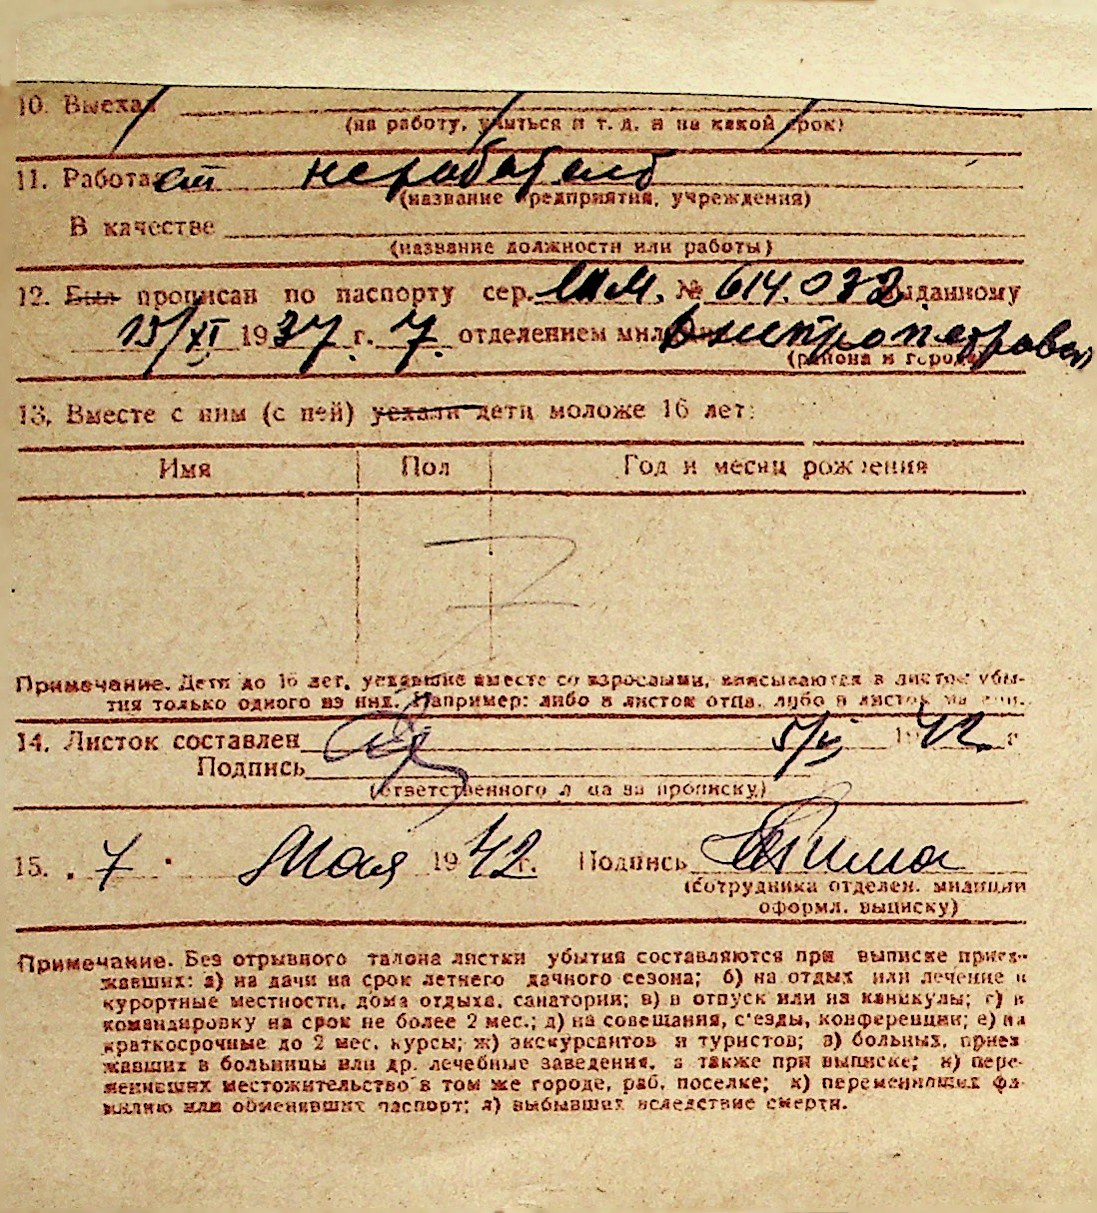 10. Выехал
(на работу, учиться и т. д. и на какой срок)
11. Работает неработает
(название предприятия, учреждения)
В качестве
(название должности или работы)
12. Был прописан по паспорту сер. № 614.032 выданному
15/XI 1937 г. 7. отделением мил. Днепропетровск
(района и города)
13. Вместе с ним (с ней) уехали дети моложе 16 лет:
Имя Пол Год и месяц рождения
Примечание. Дети до 16 лет, уехавшие вместе со взрослыми, вписываются в листок убы-
тия только одного из них. Например: либо в листок отца, либо в листок матери.
14. Листок составлен 1942 г.
Подпись
(ответственного лица за прописку)
15. 7 Мая 1942 г. Подпись
(сотрудника отделен. милиции
оформл. выписку)
Примечание. Без отрывного талона листки убытия составляются при выписке приез-
жавших: а) на дачи на срок летнего дачного сезона; б) на отдых или лечение в
курортные местности, дома отдыха, санатории; в) в отпуск или на каникулы; г) в
командировку на срок не более 2 мес.; д) на совещания, с'езды, конференции; е) на
краткосрочные до 2 мес. курсы; ж) экскурсантов и туристов; з) больных, приез
жавших в больницы или др. лечебные заведения, а также при выписке; и) пере-
менивших местожительство в том же городе, раб. поселке; к) переменивших фа-
милию или обменивших паспорт; л) выбывших вследствие смерти.